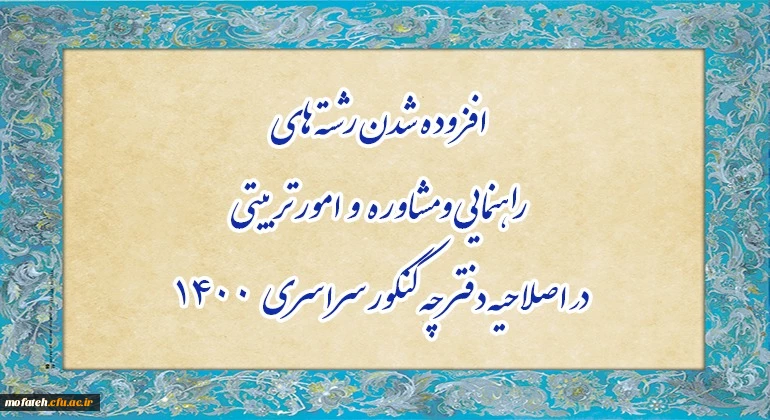 افزوده شدن رشته های
راهنمایی و مشاوره و امور تربیتی
در اصلاحیه دفترچه کنکور سراسری ۱۴۰۰
mofateh.cfu.ac.ir